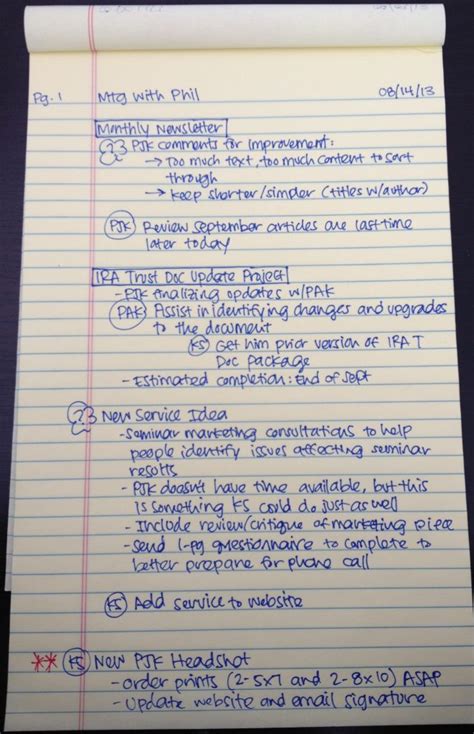 Pg. 1 Mtg with Phil 08/14/13
Monthly Newsletter
PJK comments for improvement:
→ Too much text, too much content to sort
through
→ Keep shorter/simpler (titles w/author)
PJK Review September articles one last time
later today
IRA Trust Doc Update Project
- PJK finalizing updates w/PAK
PAK Assist in identifying changes and upgrades
to the document
KS Get him prior version of IRAT
Doc Package
- Estimated completion: End of Sept
New Service Idea
- Seminar marketing consultations to help
people identify issues affecting seminar
results
- PJK doesn't have time available, but this
is something KS could do just as well
- Include review/critique of marketing piece
- Send 1-pg questionnaire to complete to
better prepare for phone call
KS Add service to website
** KS New PJK Headshot
- order prints (2-5x7 and 2-8x10) ASAP
- Update website and email signature